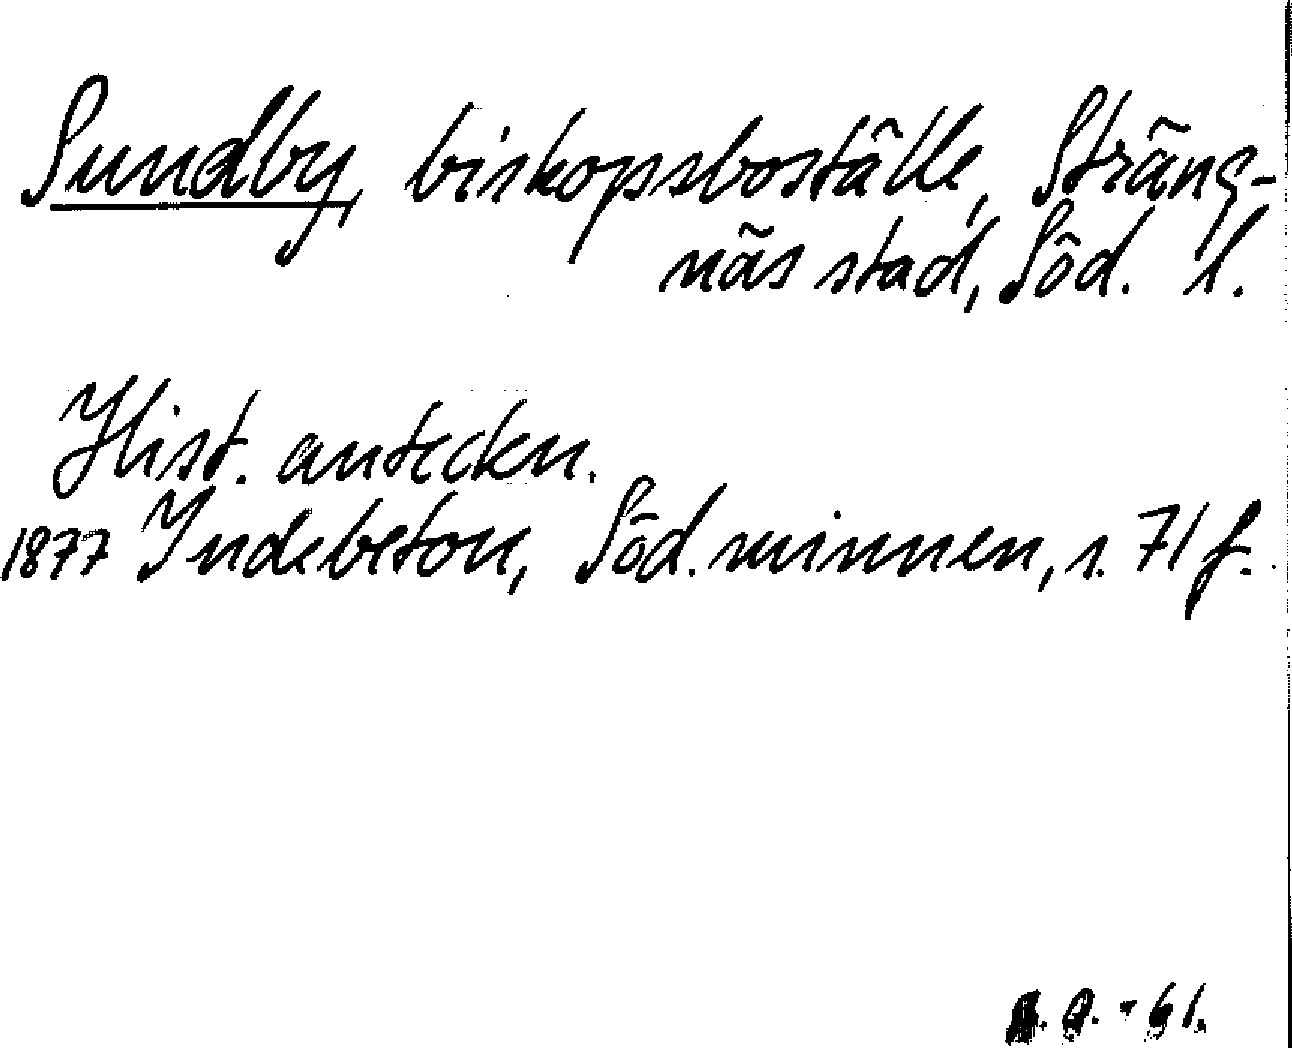 Sundby, biskopsboställe, Sträng-
näs stad, Söd. l.
Hist. anteckn.
1877 Indebetou, Söd. minnen, s. 71 f.
-61.